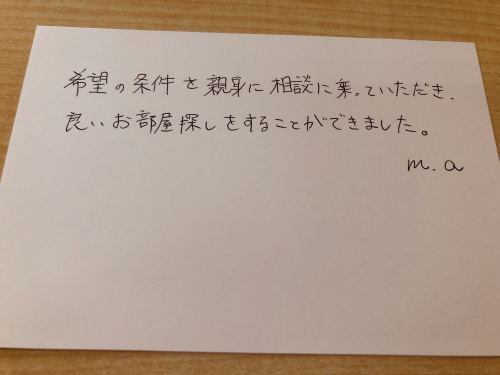 希望の条件を親身に相談に乗っていただき、
良いお部屋探しをすることができました。
m.a